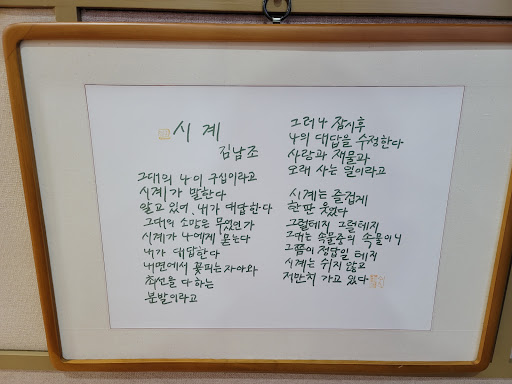 시계
김남조
그대의 나이 구십이라고
시계가 말한다
알고 있어, 내가 대답한다
그대의 소망은 무엇인가
시계가 나에게 묻는다
내가 대답한다
내면에서 꽃피는 자아와
최선을 다하는
분발이라고
그러나 잠시후
나의 대답을 수정한다
사랑과 재물과
오래 사는 일이라고
시계는 즐겁게
한판 웃었다
그럴테지 그럴테지
그대는 속물중의 속물이니
그쯤이 정답일 테지
시계는 쉬지 않고
저만치 가고 있다